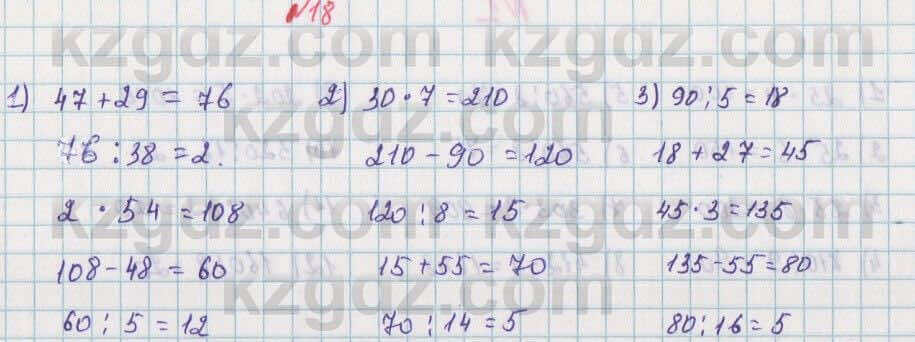 №18
kzgdz.com
1) 47 + 29 = 76 2) 30 · 7 = 210 3) 90 : 5 = 18
76 : 38 = 2. 210 - 90 = 120 18 + 27 = 45
kzgdz.com
2 · 54 = 108 120 : 8 = 15 45 · 3 = 135
108 - 48 = 60 15 + 55 = 70 135 - 55 = 80
kzgdz.com
60 : 5 = 12 70 : 14 = 5 80 : 16 = 5